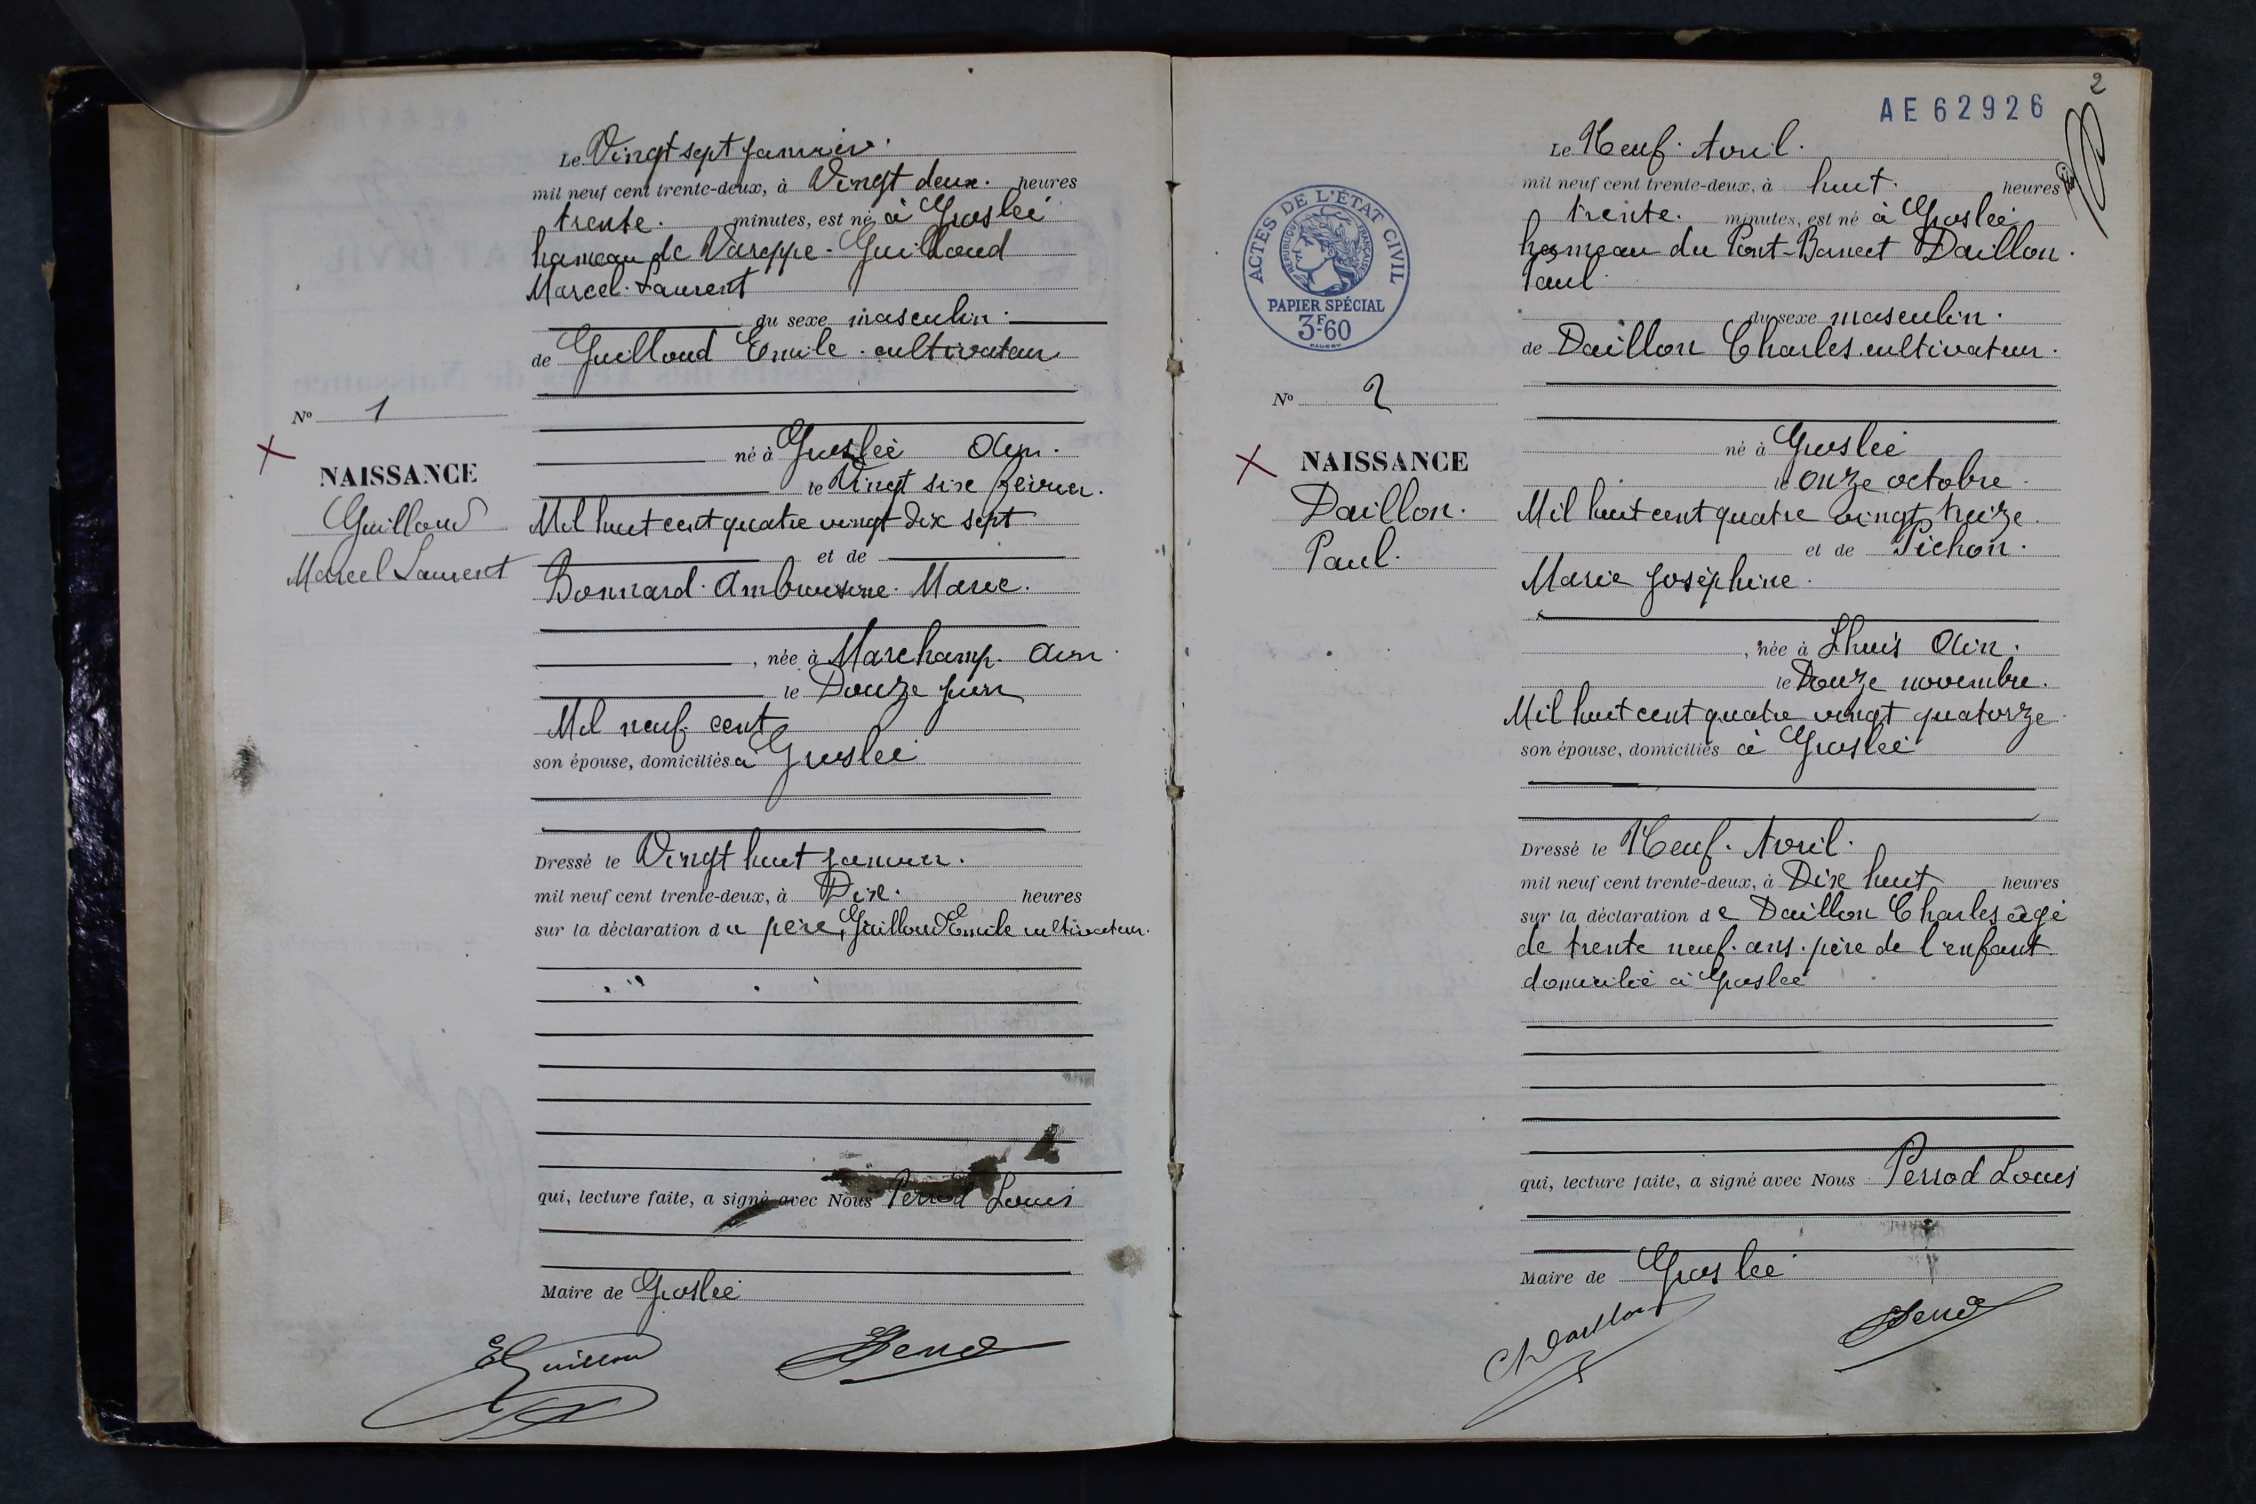 Le Vingt sept janvier.
mil neuf cent trente-deux, à Vingt deux. heures
trente. minutes, est né à Groslée
hameau de Vareppe - Guilloud
Marcel. Laurent
du sexe masculin.
de Guilloud Emile. cultivateur
N° 1
né à Groslée Ain.
NAISSANCE
le Vingt six février.
Guilloud
Mil huit cent quatre vingt dix sept
Marcel Laurent
et de
Bonnard. Ambroisine. Marie.
, née à Marchamp. Ain.
le Douze juin
Mil neuf cent
son épouse, domiciliés à Groslée
Dressé le Vingt huit janvier.
mil neuf cent trente-deux, à Dix. heures
sur la déclaration du père, Guilloud Emile cultivateur.
qui, lecture faite, a signé avec Nous Perrod Louis
Maire de Groslée
EGuilloud
2
AE 62926
Le Neuf. Avril.
mil neuf cent trente-deux, à huit. heures
trente. minutes, est né à Groslée
hameau du Port-Bancet Daillon.
Paul
ACTES DE L'ÉTAT CIVIL
RÉPUBLIQUE FRANÇAISE
PAPIER SPÉCIAL
3F.60
du sexe masculin.
de Daillon Charles. cultivateur.
N° 2
né à Groslée
NAISSANCE
le onze octobre.
Daillon.
Mil huit cent quatre vingt treize.
Paul.
et de Pichon.
Marie Joséphine.
, née à Lhuis Ain.
le Douze novembre.
Mil huit cent quatre vingt quatorze
son épouse, domiciliés à Groslée
Dressé le Neuf. Avril.
mil neuf cent trente-deux, à Dix huit heures
sur la déclaration de Daillon Charles âgé
de trente neuf. ans. père de l'enfant
domicilié à Groslée
qui, lecture faite, a signé avec Nous Perrod Louis
Maire de Groslée
Ch Daillon